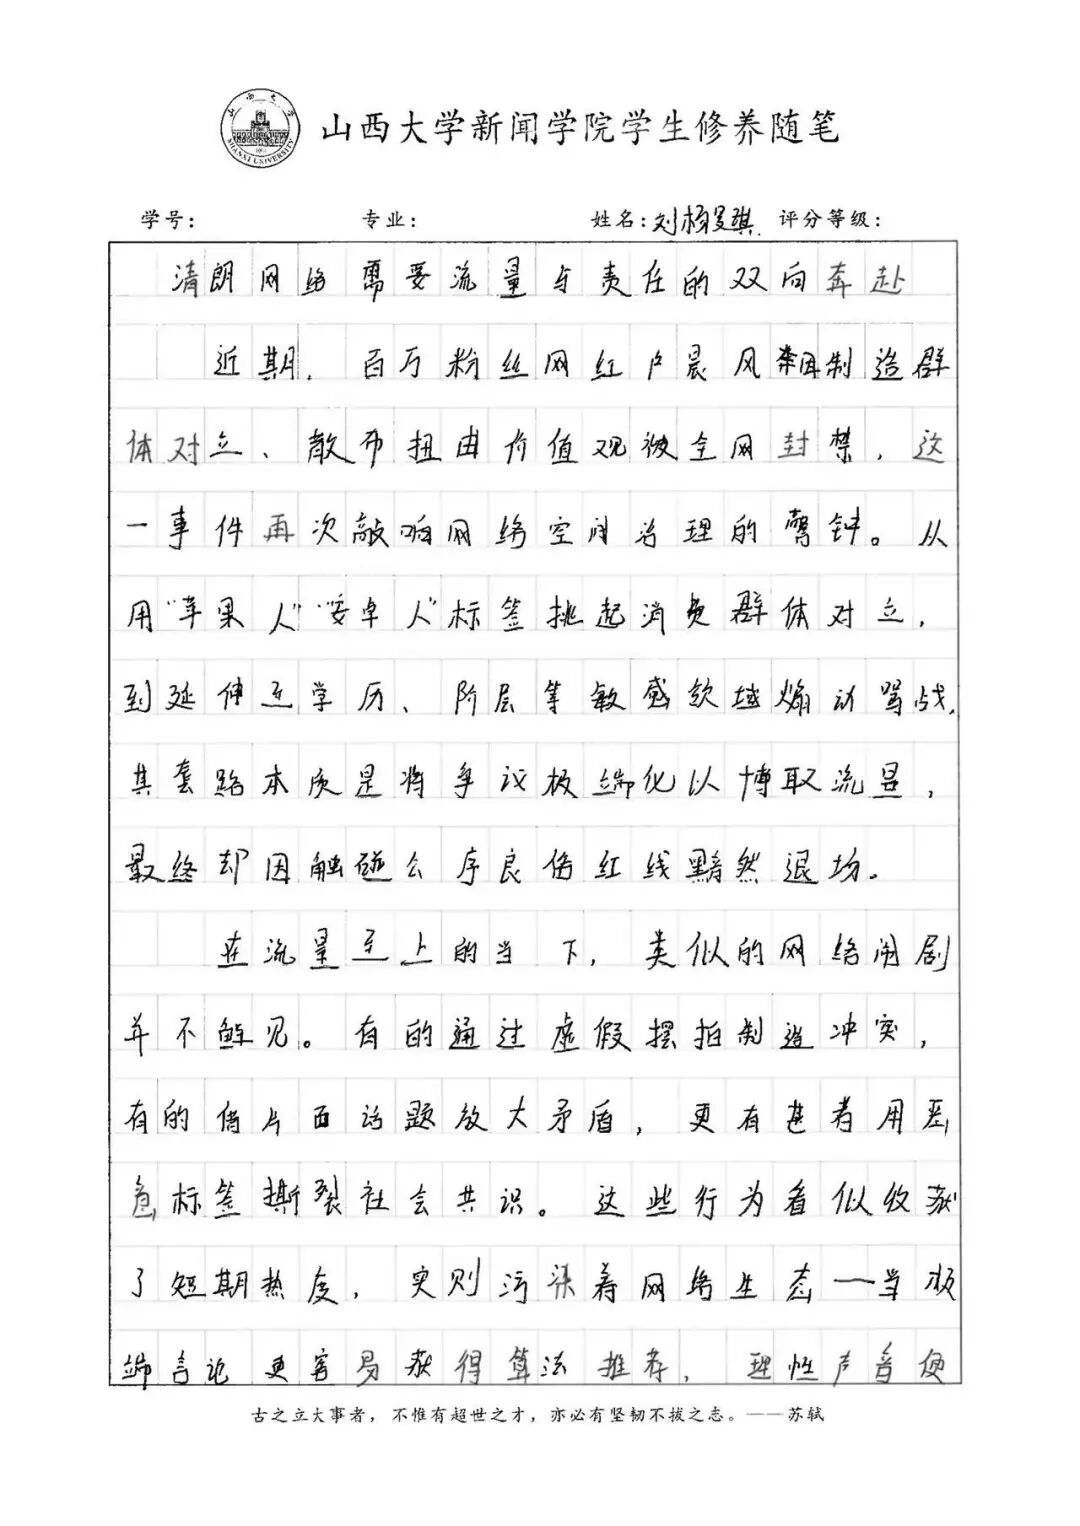 山西大学
SHANXI UNIVERSITY
山西大学新闻学院学生修养随笔
学号： 专业： 姓名：刘杨旻琪 评分等级：
清朗网络需要流量与责任的双向奔赴
近期，百万粉丝网红户晨风因制造群
体对立、散布扭曲价值观被全网封禁，这
一事件再次敲响网络空间治理的警钟。从
用“苹果人”“安卓人”标签挑起消费群体对立，
到延伸至学历、阶层等敏感领域煽动骂战，
其套路本质是将争议极端化以博取流量，
最终却因触碰公序良俗红线黯然退场。
在流量至上的当下，类似的网络闹剧
并不鲜见。有的通过虚假摆拍制造冲突，
有的借片面话题放大矛盾，更有甚者用恶
意标签撕裂社会共识。这些行为看似收获
了短期热度，实则污染着网络生态——当极
端言论更容易获得算法推荐，理性声音便
古之立大事者，不惟有超世之才，亦必有坚韧不拔之志。——苏轼